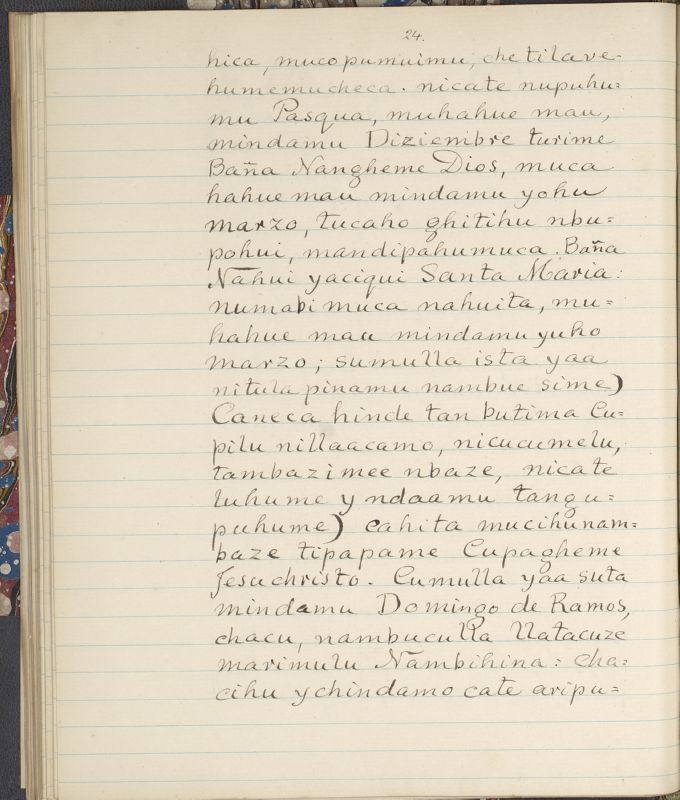 24.
hica, mucopumuimu, che tilave-
humemucheca. nicate nupuhu=
mu Pasqua, muhahue mau,
mindamu Diziembre turime
Baña Nangheme Dios, muca
hahue mau mindamu yohu
marzo, tucaho ghitihu nbu=
pohui, mandipahumuca. Baña
Nahui yaciqui Santa Maria:
numabi muca nahuita, mu=
hahue mau mindamu yuho
marzo; sumulla ista yaa
nitula pinamu nambue sime)
Caneca hinde tan butima Cu=
pilu nillaacamo, nicucumelu,
tambazimee nbaze, nicate
luhume y ndaamu tangu=
puhume) cahita mucihunam=
baze tipapame Cupagheme
Jesuchristo. Cumulla yaa suta
mindamu Domingo de Ramos,
chacu, nambuculla llatacuze
marimulu Nambihina: cha=
cihu y chindamo cate aripu=